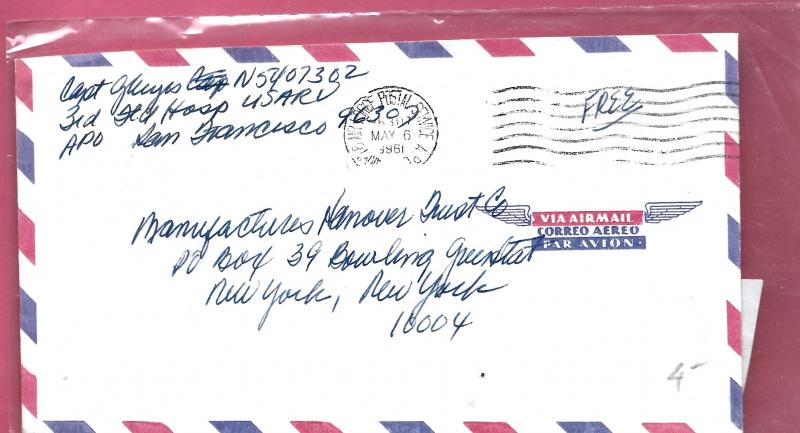 Capt G Keyes N5407302
3rd Fld Hosp USARV
APO San Francisco 96307
MAY 6
FREE
VIA AIRMAIL
CORREO AEREO
PAR AVION
Manufactures Hanover Trust Co
PO Box 39 Bowling Green Stat
New York, New York
10004
4-